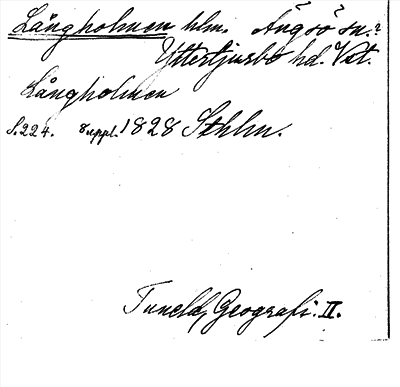 Långholmen hlm. Ängsö sn.?
Yttertjurbo hd. Vst.
Långholmen
S. 224. 8 uppl. 1828 Sthlm.
Tuneld, Geografi. II.